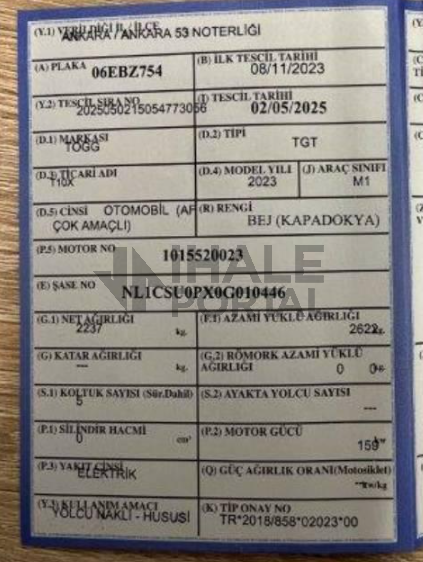 (Y.1) VERİLDİĞİ İL / İLÇE
ANKARA / ANKARA 53 NOTERLİĞİ
(A) PLAKA 06EBZ754
(B) İLK TESCİL TARİHİ
08/11/2023
(Y.2) TESCİL SIRA NO
2025050215054773056
(I) TESCİL TARİHİ
02/05/2025
(D.1) MARKASI
TOGG
(D.2) TİPİ
TGT
(D.3) TİCARİ ADI
T10X
(D.4) MODEL YILI
2023
(J) ARAÇ SINIFI
M1
(D.5) CİNSİ OTOMOBİL (AF
ÇOK AMAÇLI)
(R) RENGİ
BEJ (KAPADOKYA)
(P.5) MOTOR NO
1015520023
(E) ŞASE NO
NL1CSU0PX0G010446
İHALE
PORTAL
(G.1) NET AĞIRLIĞI
2237 kg.
(F.1) AZAMİ YÜKLÜ AĞIRLIĞI
2622 kg.
(G) KATAR AĞIRLIĞI
--- kg.
(G.2) RÖMORK AZAMİ YÜKLÜ
AĞIRLIĞI 0 0 kg.
(S.1) KOLTUK SAYISI (Sür.Dahil)
5
(S.2) AYAKTA YOLCU SAYISI
---
(P.1) SİLİNDİR HACMİ
0 cm³
(P.2) MOTOR GÜCÜ
159
(P.3) YAKIT CİNSİ
ELEKTRİK
(Q) GÜÇ AĞIRLIK ORANI(Motosiklet)
kw/kg
(Y.3) KULLANIM AMACI
YOLCU NAKLİ - HUSUSİ
(K) TİP ONAY NO
TR*2018/858*02023*00